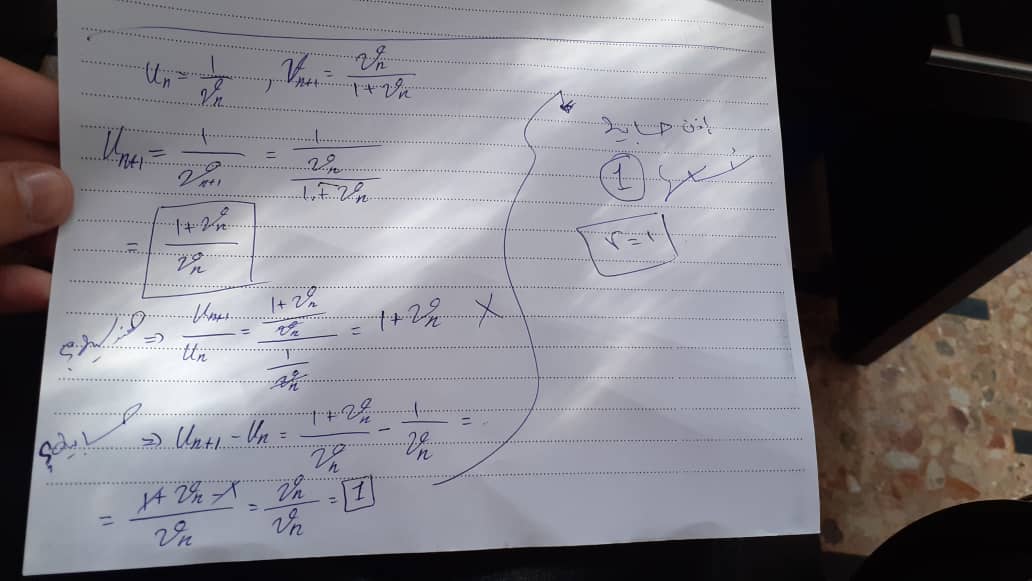 Uₙ = 1/vₙ , Vₙ₊₁ = vₙ/(1+vₙ)
Uₙ₊₁ = 1/vₙ₊₁ = 1/(vₙ/(1+vₙ))
= (1+vₙ)/vₙ
⇒ Uₙ₊₁/Uₙ = ((1+vₙ)/vₙ)/(1/vₙ) = 1+vₙ X
⇒ Uₙ₊₁ - Uₙ = (1+vₙ)/vₙ - 1/vₙ =
= (1+vₙ-1)/vₙ = vₙ/vₙ = 1
1
r=1